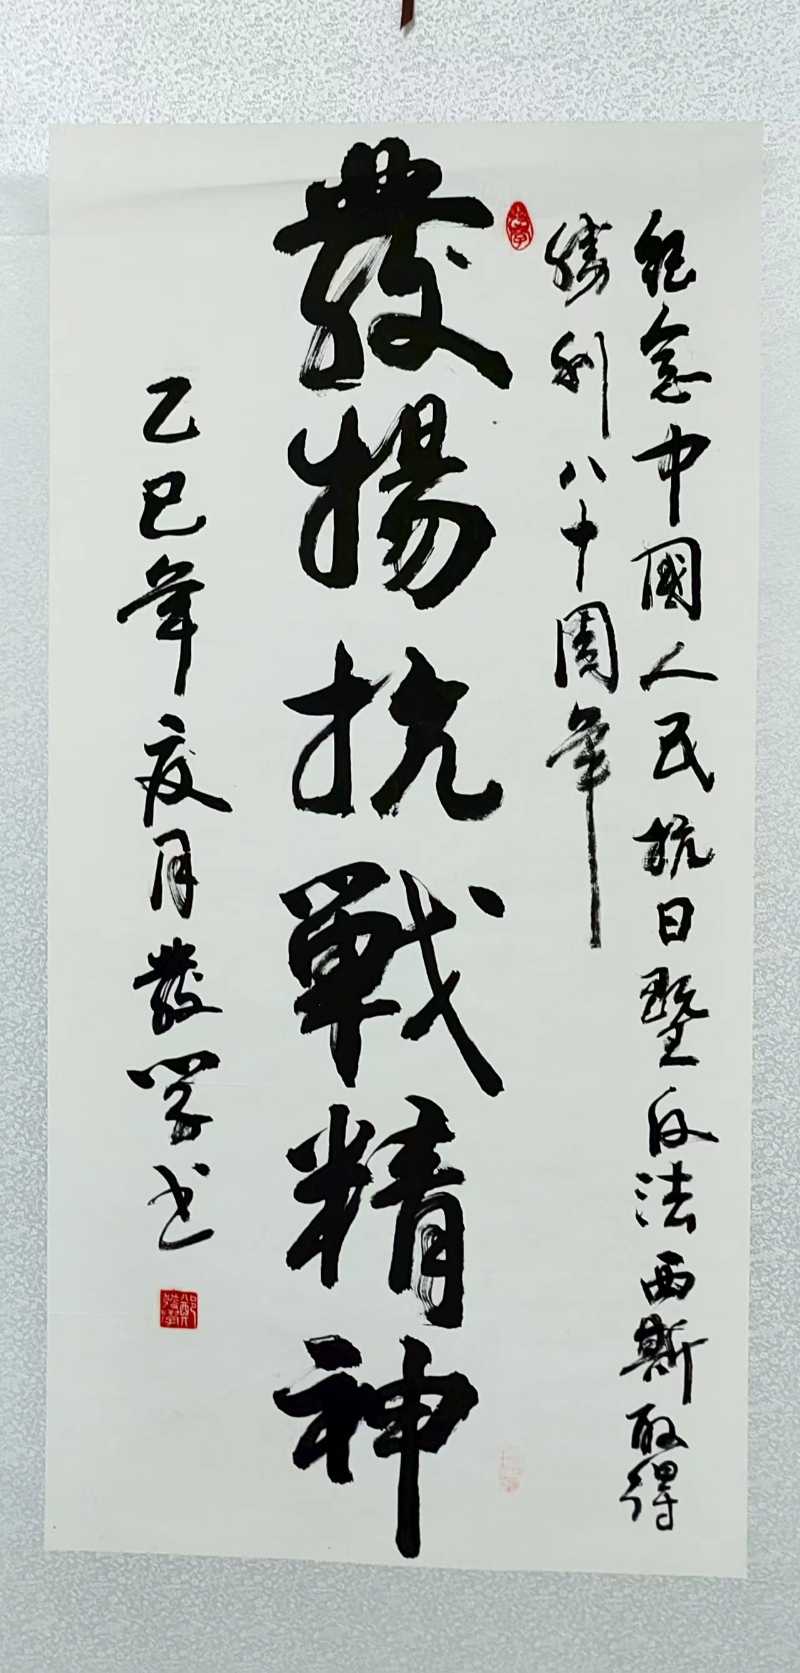 紀念中國人民抗日暨反法西斯取得
勝利八十周年
發揚抗戰精神
乙巳年夏月發學书